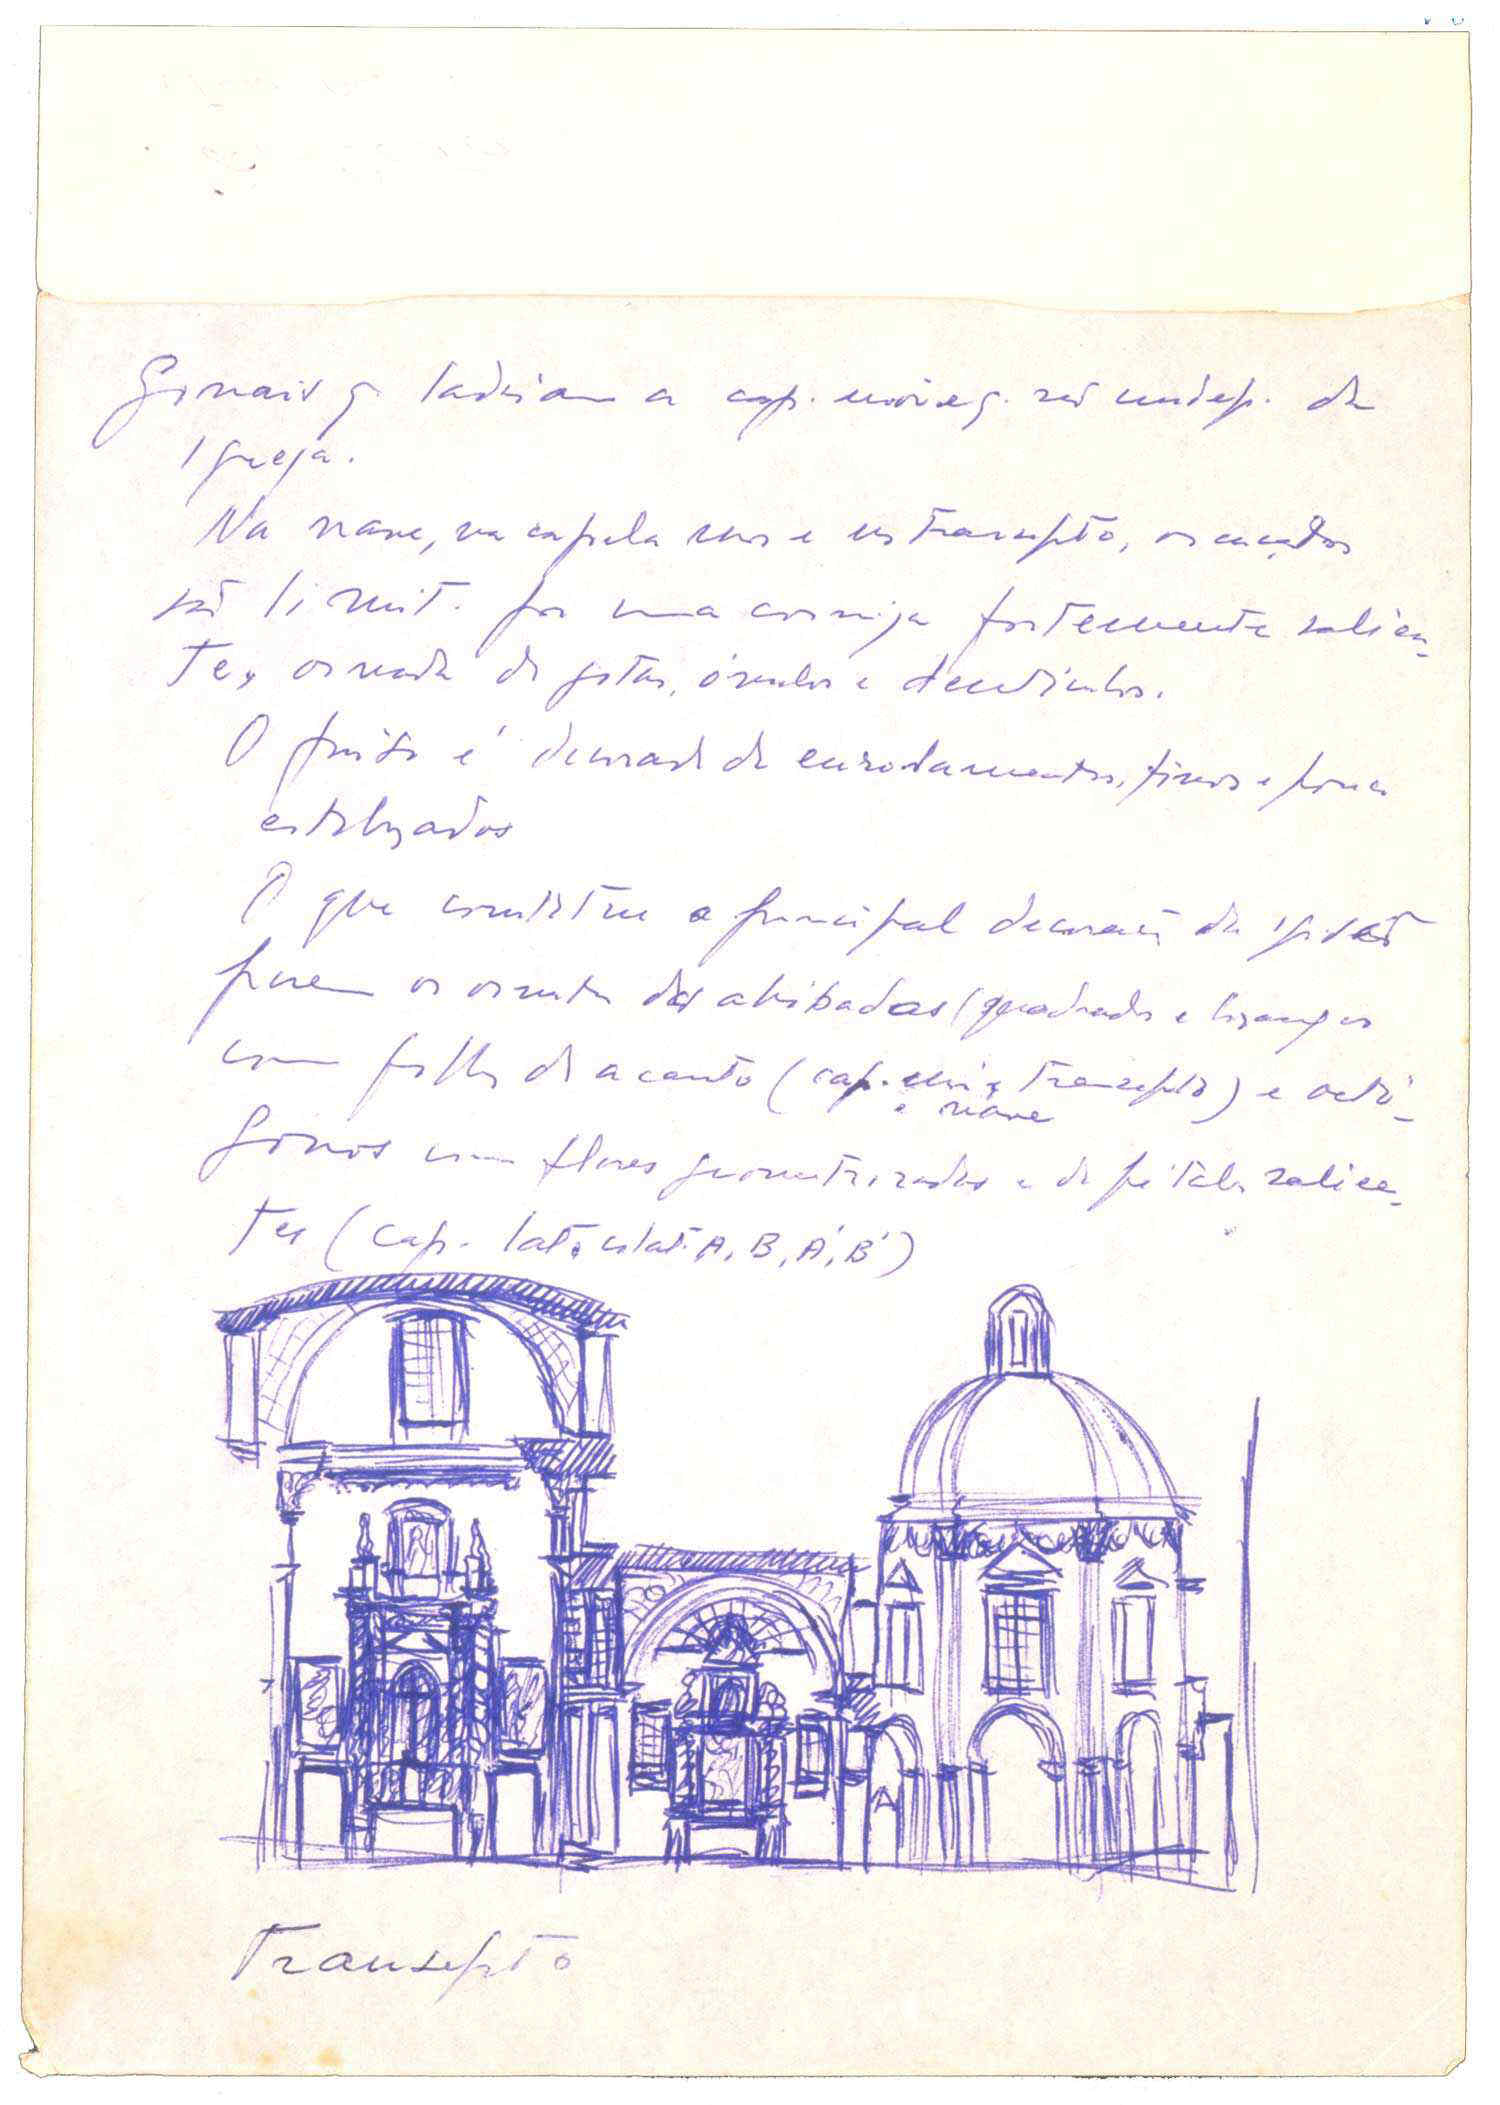 gonais q. ladeiam a cap. mór e q. são indep. da
igreja.
Na nave, na capela mor e no transepto, os
são limit. por uma cornija fortemente salien-
te, ornada de gotas, óvulos e dentículos.
O friso é decorado de enrolamentos, finos e pouco
estilizados
O que constitue a principal decoração da
porem os das abóbadas (quadrados e losangos
com folhas de acanto (cap. mór, transepto) e octó-
e nave
gonos com flores geometrizadas e de pétalas salien-
tes (cap. lat. colat. A, B, A', B')
Transepto